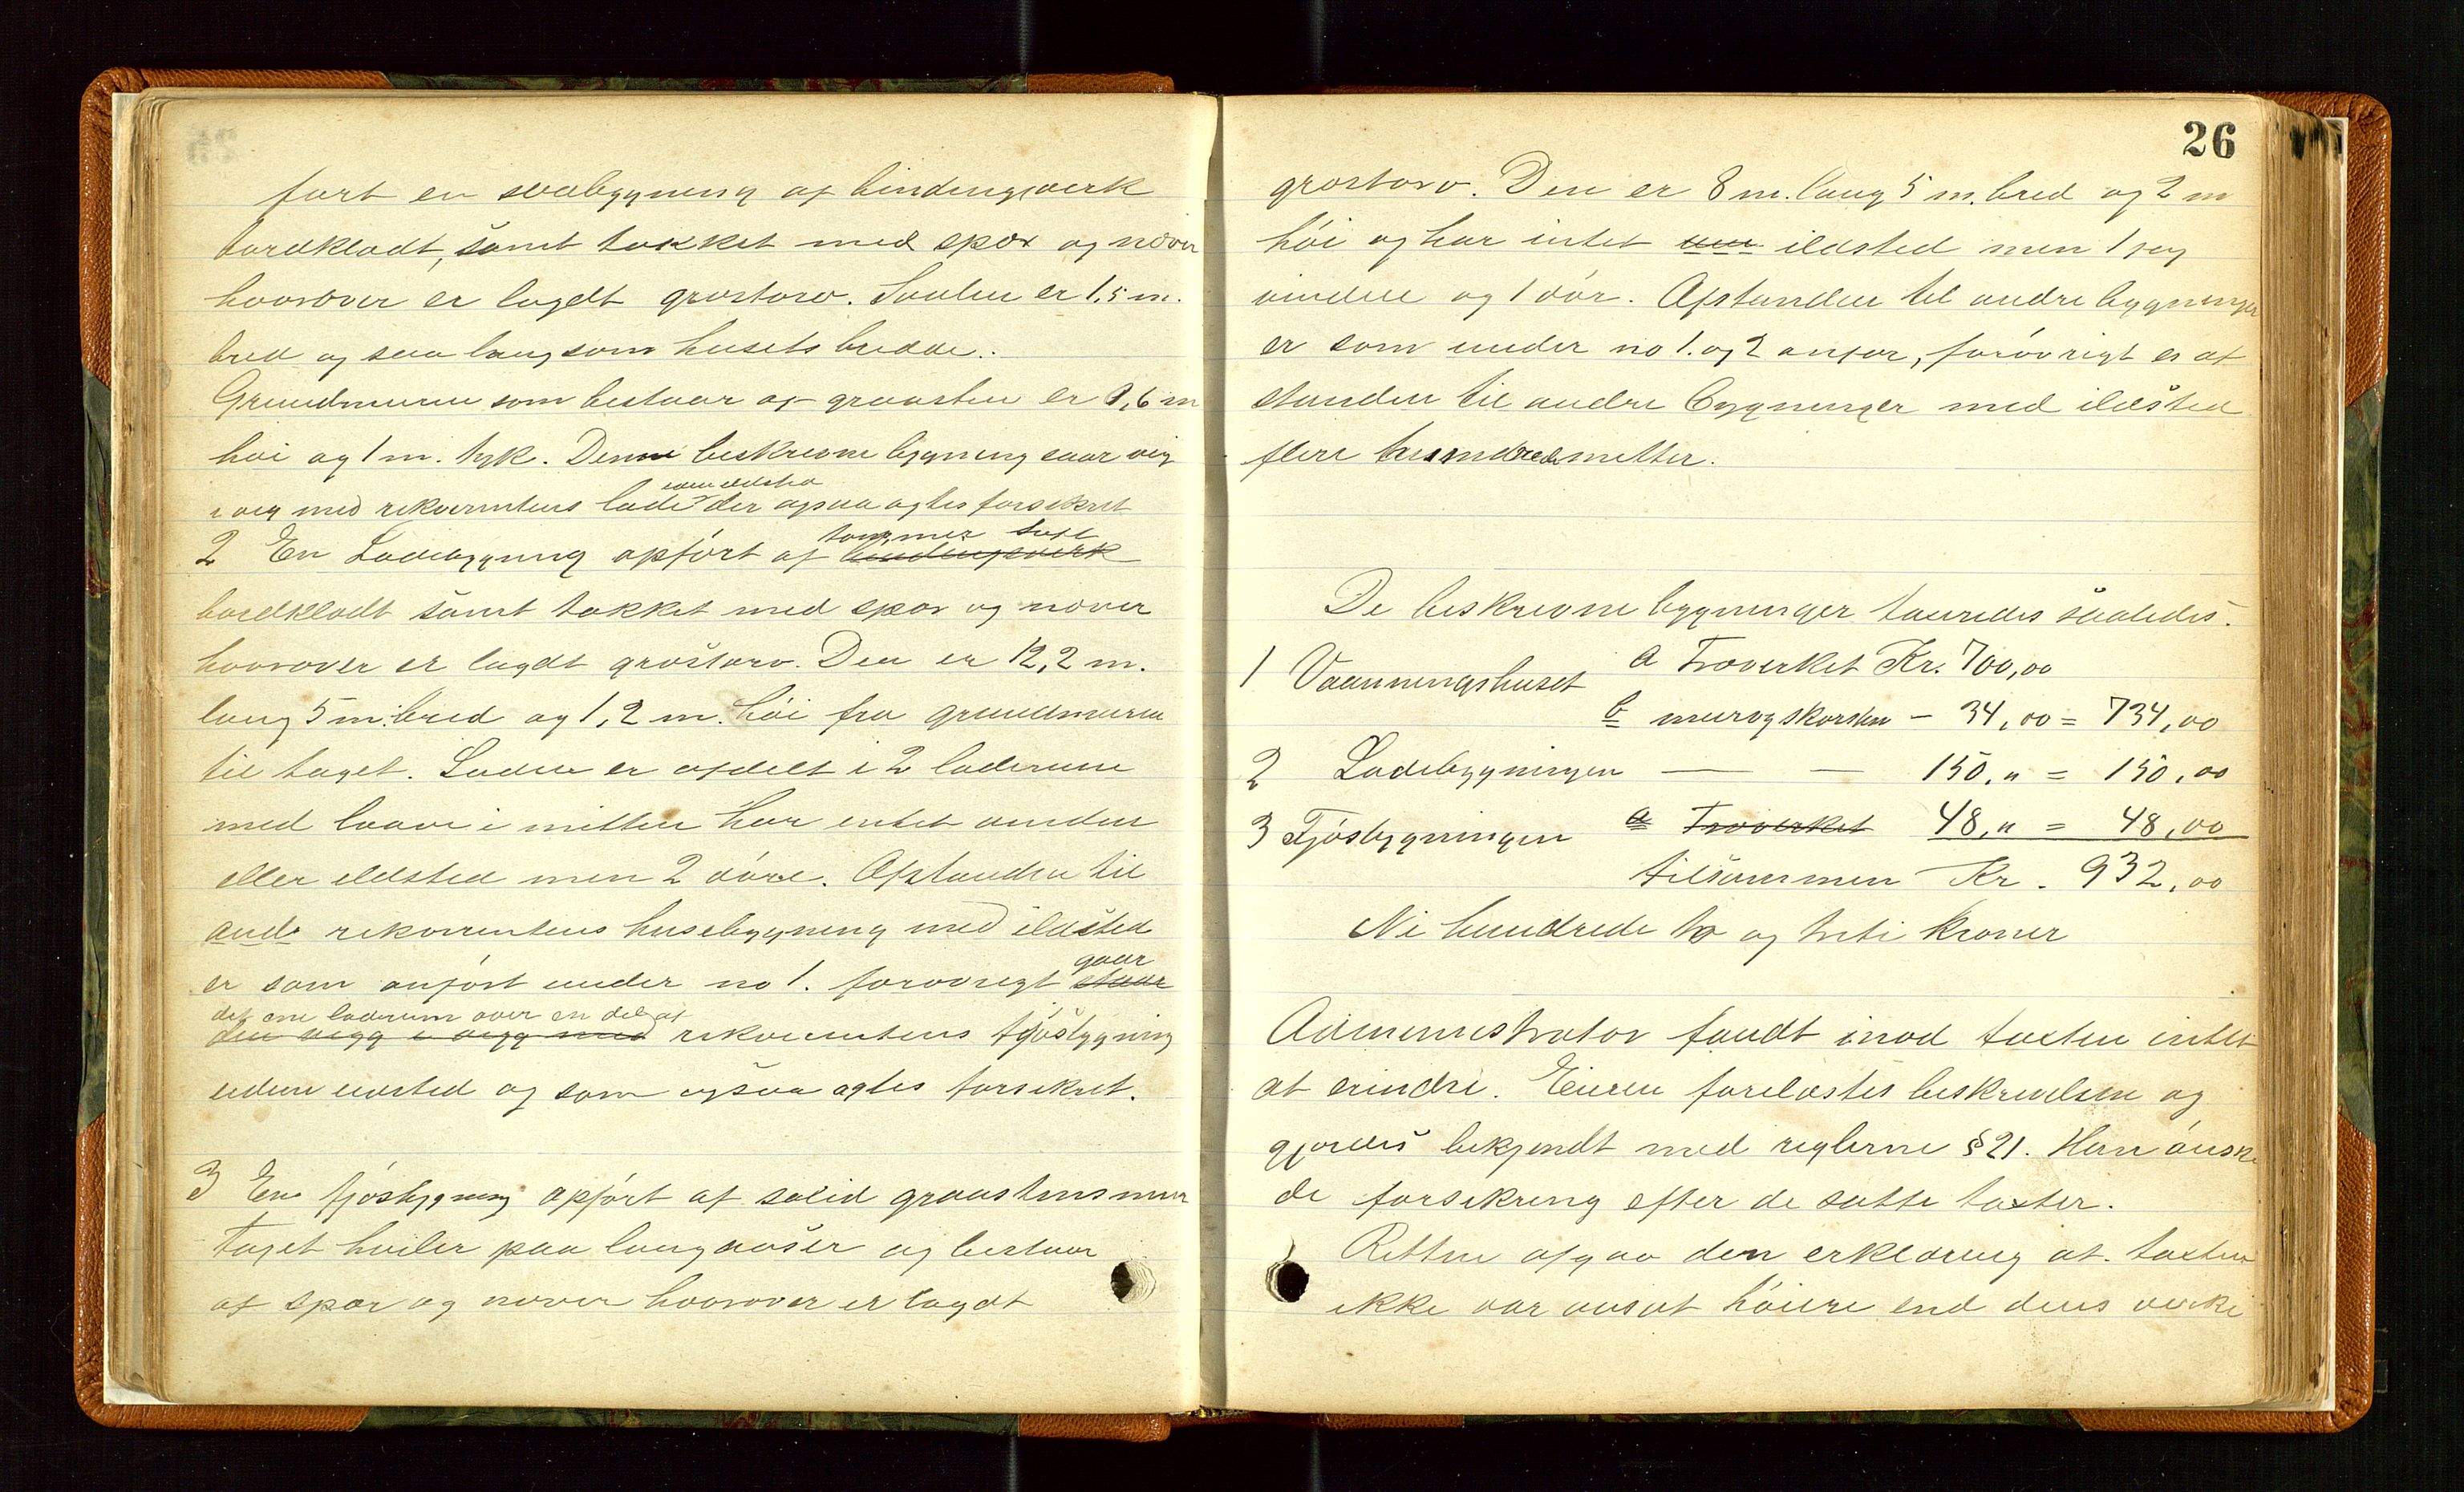 ført en svalbygning af bindingsverk
bordklædt, samt tækket med spær og næver
hvorover er lagdt græstorv. Svalen er 1,5 m.
bred og saa lang som husets bredde.
Grundmuren som bestaar af graasten er 0,6 m
høi og 1 m. tyk. Denne beskrevne bygning staar veg
i veg med rekvirentens lade uden ildsted der ogsaa agtes forsikret
2 En Ladebygning opført af bindingsverk tømmer
bordklædt samt tækket med spær og næver
hvorover er lagdt græstorv. Den er 12,2 m.
lang 5 m. bred og 1,2 m. høi fra grundmuren
til taget. Laden er afdelt i 2 laderum
med laave i mitten har intet vindu
eller ildsted men 2 døre. Afstanden til
andr rekvirentens husebygning med ildsted
er som anført under no 1. forøvrigt staar gaar
den vegg i vegg med det ene laderum over en del af rekvirentens fjøsbygning
uden ildsted og som ogsaa agtes forsikret.
3 En fjøsbygning opført af solid graastensmur
Taget hviler paa langaaser og bestaar
af spær og næver hvorover er lagdt
26
græstorv. Den er 8 m. lang 5 m. bred og 2 m
høi og har intet ildsted men 1 fag
vindue og 1 dør. Afstanden til andre bygninger
er som under no 1. og 2 anført, forøvrigt er af
standen til andre bygninger med ildsted
flere hundrede metter.
De beskrevne bygninger taxeredes saaledes.
1 Vaaningshuset a Træverket Kr. 700,00
b mur og skorsten – 34,00 = 734,00
2 Ladebygningen — — 150,„ = 150,00
3 Fjøsbygningen a Træverket 48,„ = 48,00
tilsammen Kr. 932,00
Ni hundrede to og treti kroner
Administrator fandt imod taxten intet
at erindre. Eieren forelæstes beskrivelsen og
gjordes bekjendt med reglerne § 21. Han ønske
de forsikring efter de satte taxter.
Retten afgav den erklæring at taxten
ikke var ansat høiere end dens virke